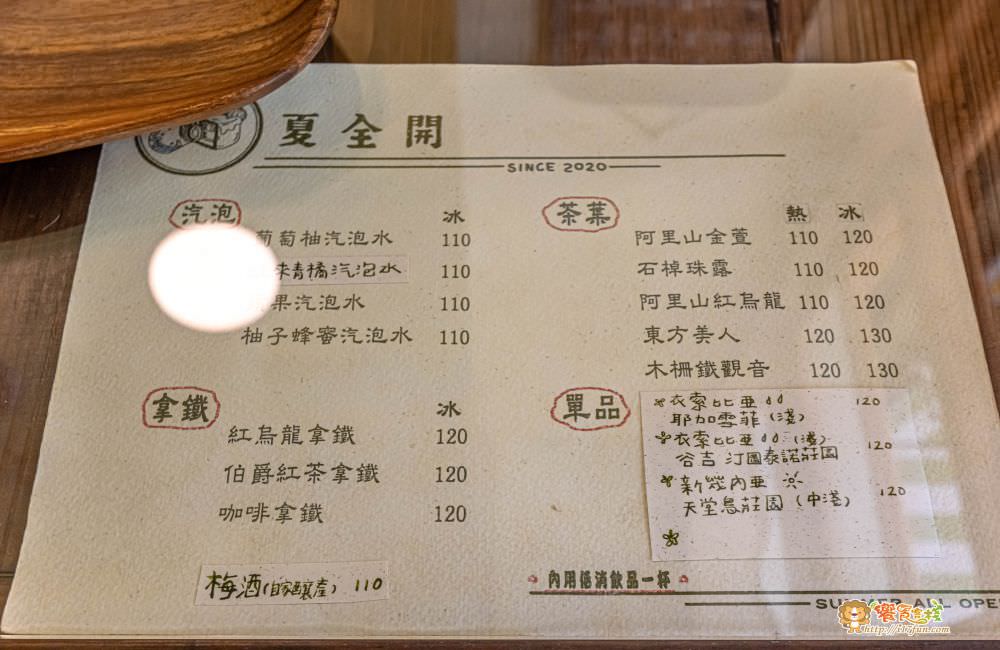 夏全開
SINCE 2020
汽泡 冰
葡萄柚汽泡水 110
青橘汽泡水 110
果汽泡水 110
柚子蜂蜜汽泡水 110
拿鐵 冰
紅烏龍拿鐵 120
伯爵紅茶拿鐵 120
咖啡拿鐵 120
梅酒(自家釀產) 110
茶葉 熱 冰
阿里山金萱 110 120
石棹珠露 110 120
阿里山紅烏龍 110 120
東方美人 120 130
木柵鐵觀音 120 130
單品
衣索比亞 120
耶加雪菲(淺)
衣索比亞 (淺) 120
谷吉 汀圖泰諾莊園
新幾內亞 120
天堂鳥莊園(中淺)
內用低消飲品一杯
SUMMER ALL OPE
http://tw3fun.com